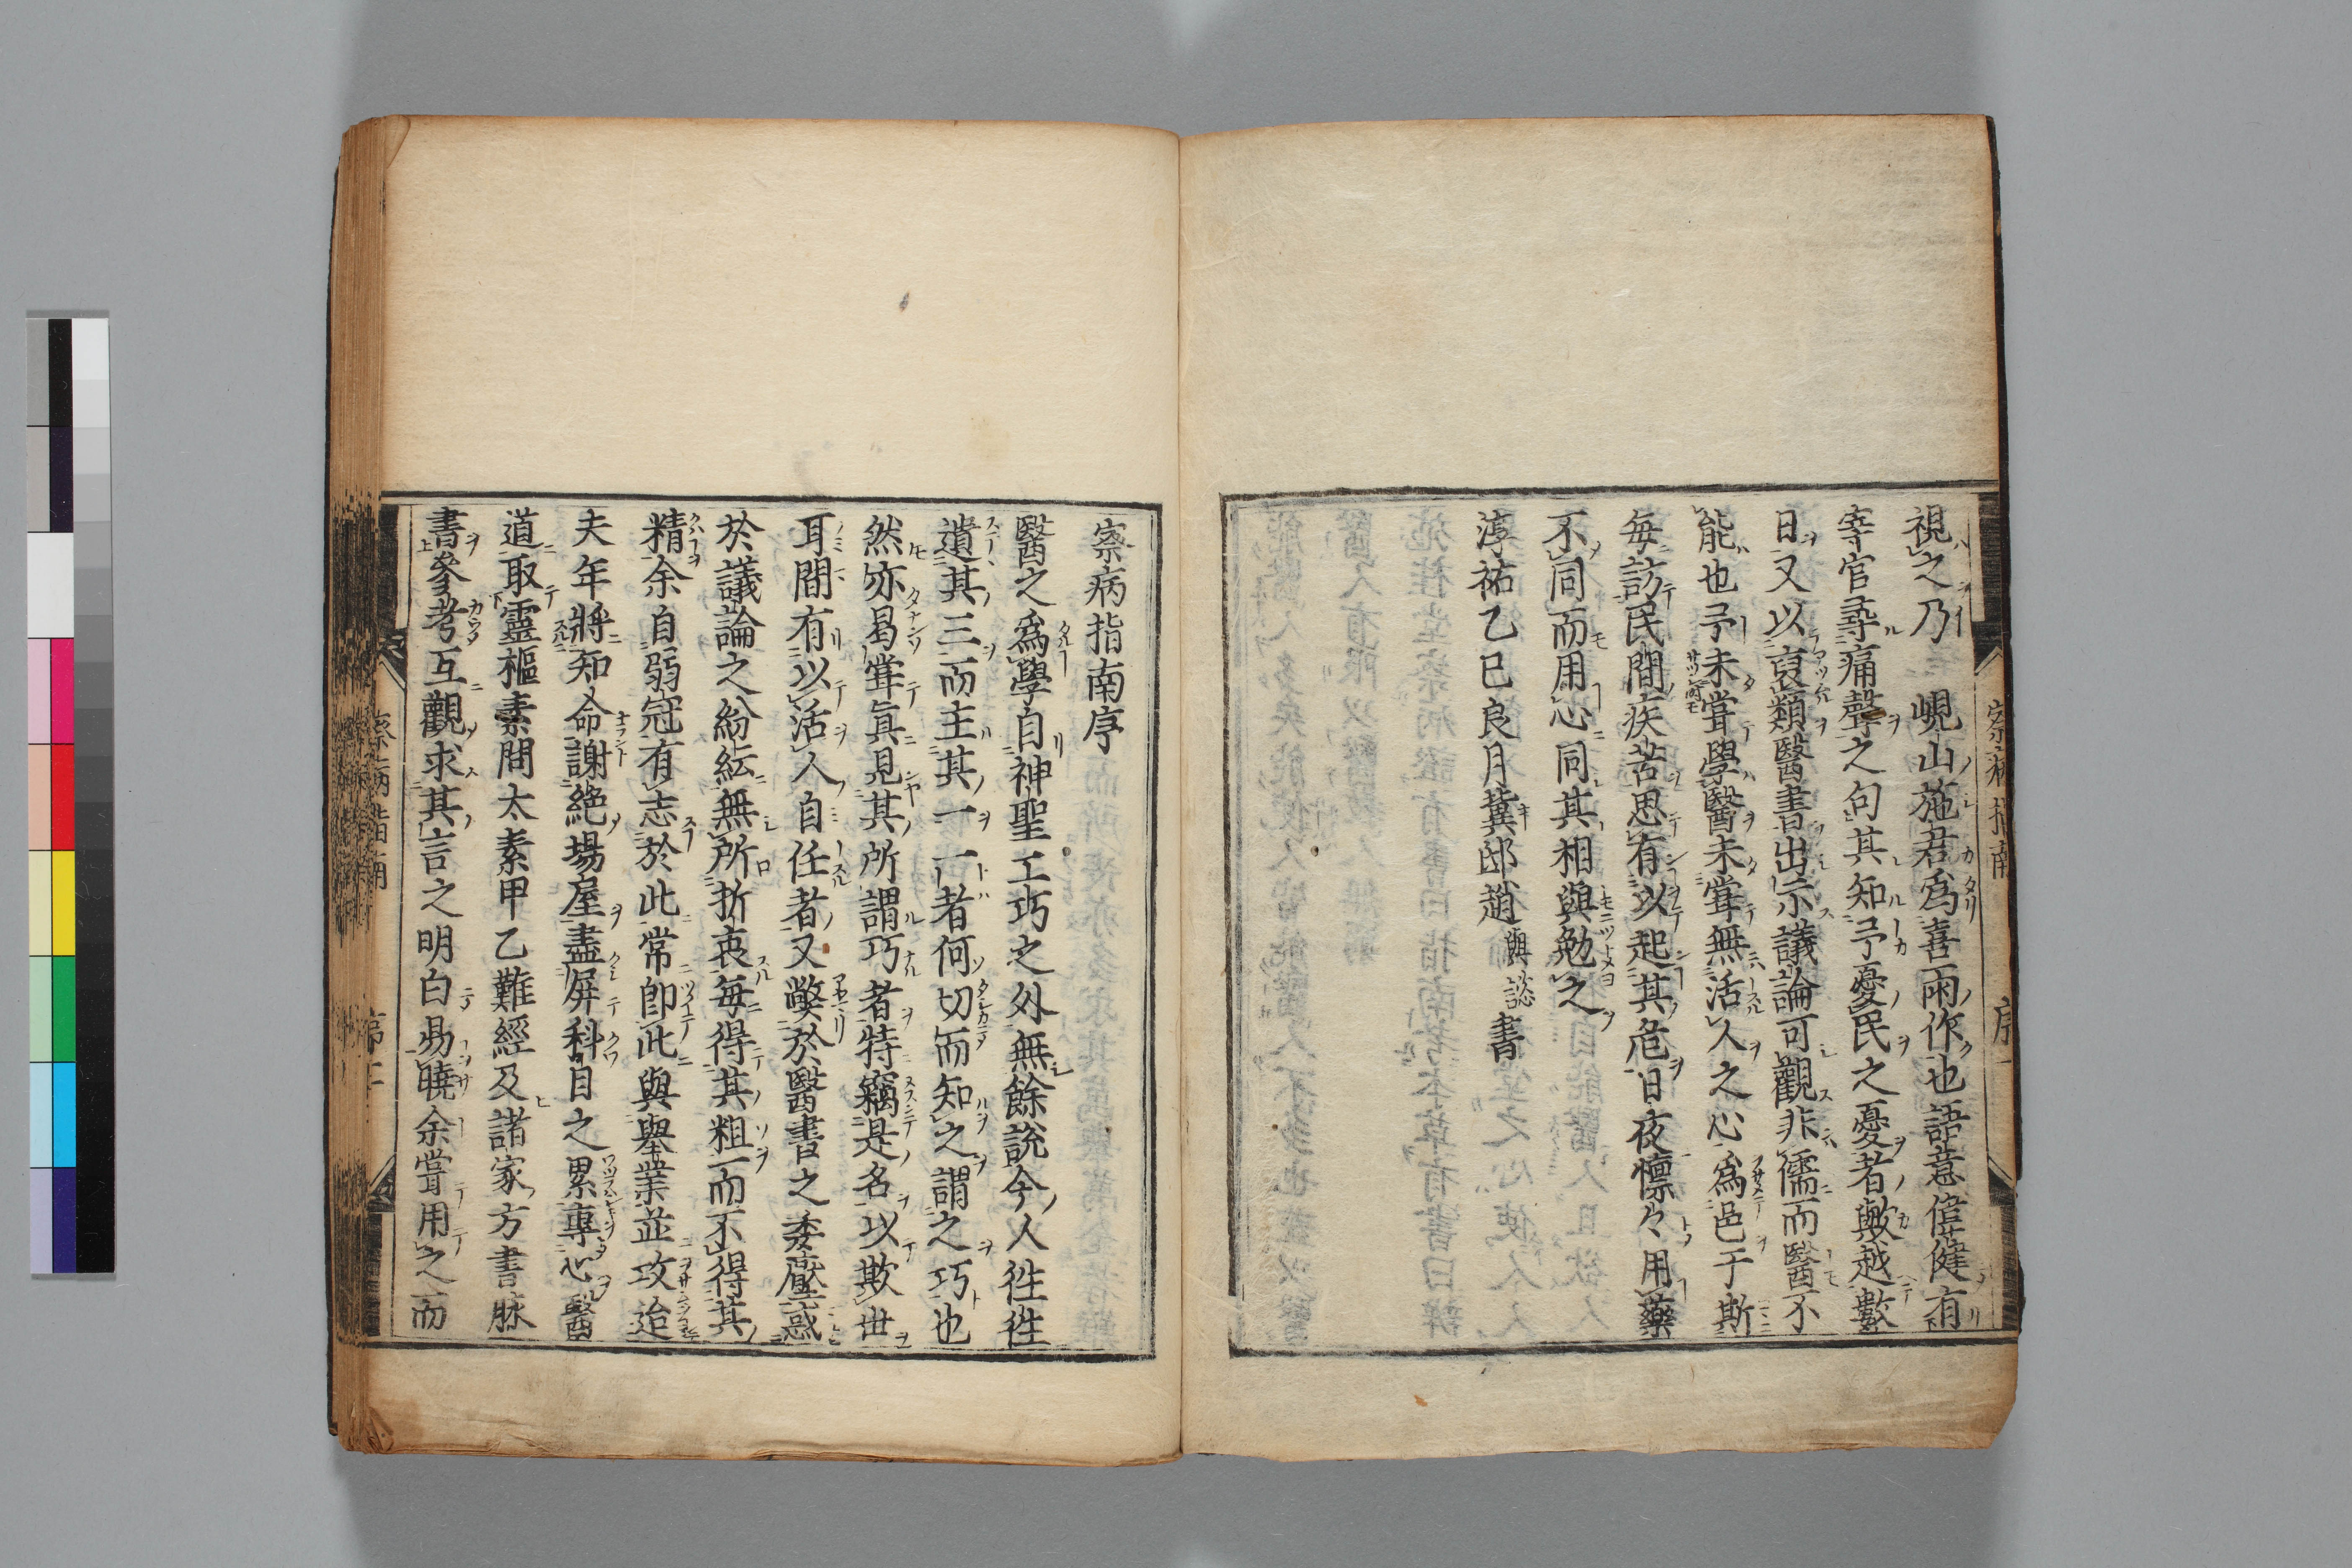 視之乃 峴山施君爲喜雨作也語意偉健有
寄官尋痛聲之句其知予憂民之憂者歟越數
日又以裒類醫書出示議論可觀非儒而醫不
能也予未甞學醫未甞無活人之心爲邑于斯
每訪民間疾苦思有以起其危日夜懍々用藥
不同而用心同其相與勉之
淳祐乙巳良月冀邸趙與諗書
察病指南
序一
察病指南序
醫之爲學自神聖工巧之外無餘說今人徃徃
遺其三而主其一一者何切而知之謂之巧也
然亦曷甞眞見其所謂巧者特竊是名以欺世
耳間有以活人自任者又獘於醫書之委壓惑
於議論之紛紜無所折衷每得其粗而不得其
精余自弱冠有志於此常卽此與舉業並攻迨
夫年將知命謝絶場屋盡屏科目之累專心醫
道取靈樞素問太素甲乙難經及諸家方書脉
書參考互觀求其言之明白易曉余甞用之而
察病指南
序二